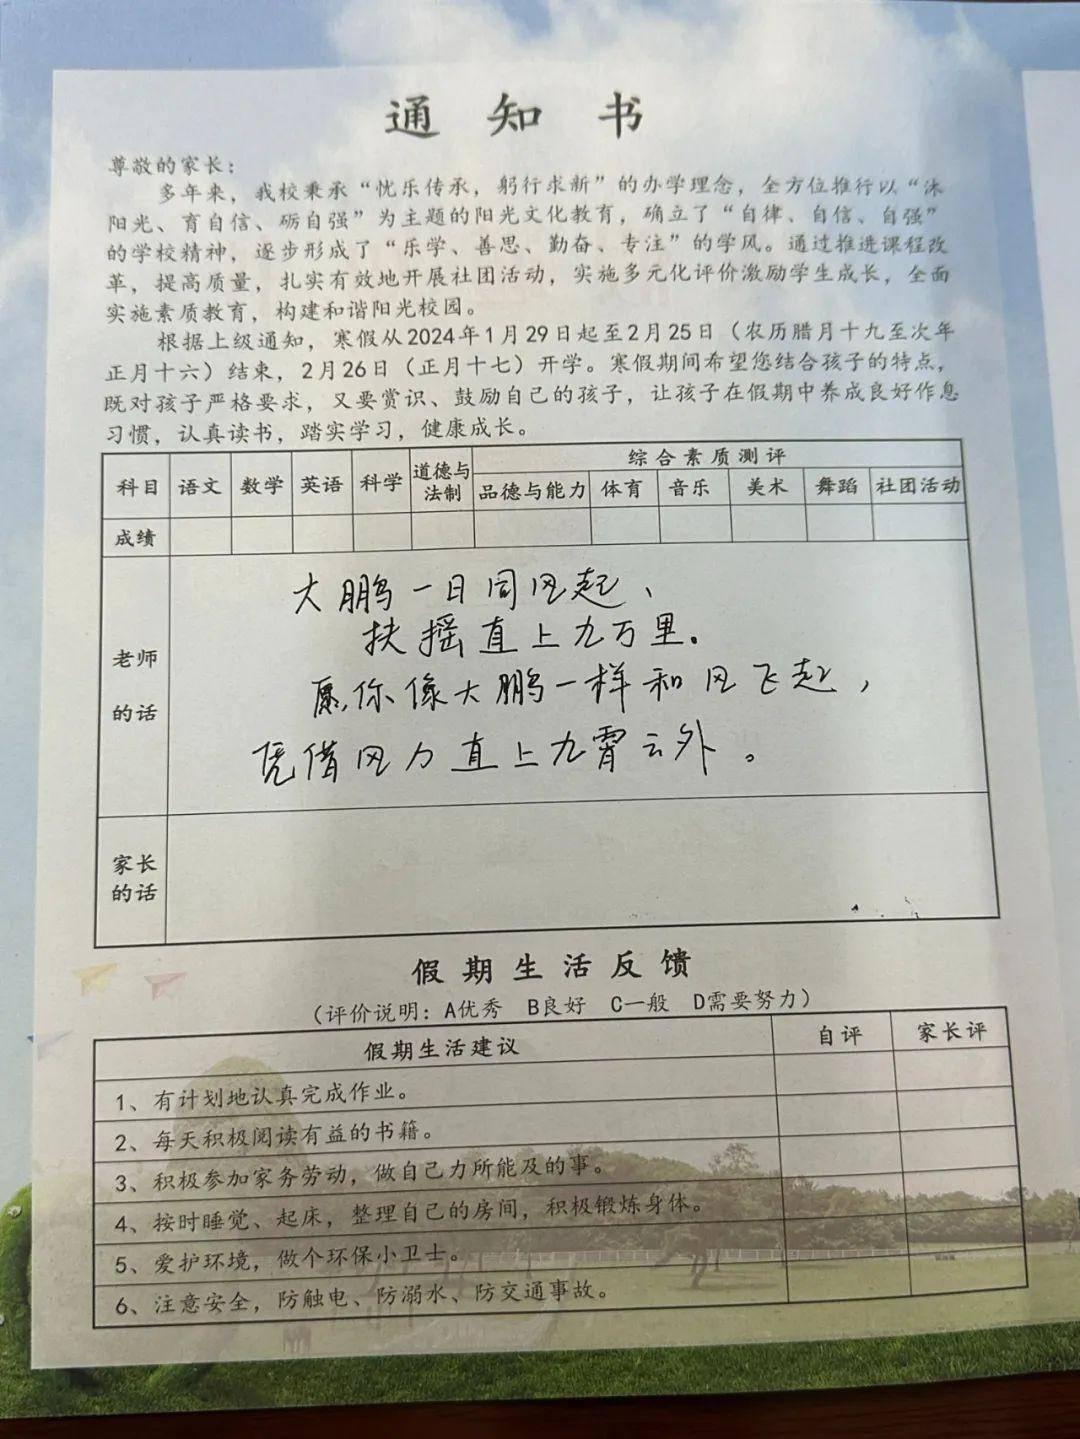 通知书
尊敬的家长：
多年来，我校秉承“忧乐传承，躬行求新”的办学理念，全方位推行以“沐
阳光、育自信、砺自强”为主题的阳光文化教育，确立了“自律、自信、自强”
的学校精神，逐步形成了“乐学、善思、勤奋、专注”的学风。通过推进课程改
革，提高质量，扎实有效地开展社团活动，实施多元化评价激励学生成长，全面
实施素质教育，构建和谐阳光校园。
根据上级通知，寒假从2024年1月29日起至2月25日（农历腊月十九至次年
正月十六）结束，2月26日（正月十七）开学。寒假期间希望您结合孩子的特点，
既对孩子严格要求，又要赏识、鼓励自己的孩子，让孩子在假期中养成良好作息
习惯，认真读书，踏实学习，健康成长。
科目 语文 数学 英语 科学 道德与法制 综合素质测评
品德与能力 体育 音乐 美术 舞蹈 社团活动
成绩
老师的话
大鹏一日同风起、
扶摇直上九万里。
愿你像大鹏一样和风飞起，
凭借风力直上九霄云外。
家长的话
假期生活反馈
（评价说明：A优秀 B良好 C一般 D需要努力）
假期生活建议 自评 家长评
1、有计划地认真完成作业。
2、每天积极阅读有益的书籍。
3、积极参加家务劳动，做自己力所能及的事。
4、按时睡觉、起床，整理自己的房间，积极锻炼身体。
5、爱护环境，做个环保小卫士。
6、注意安全，防触电、防溺水、防交通事故。